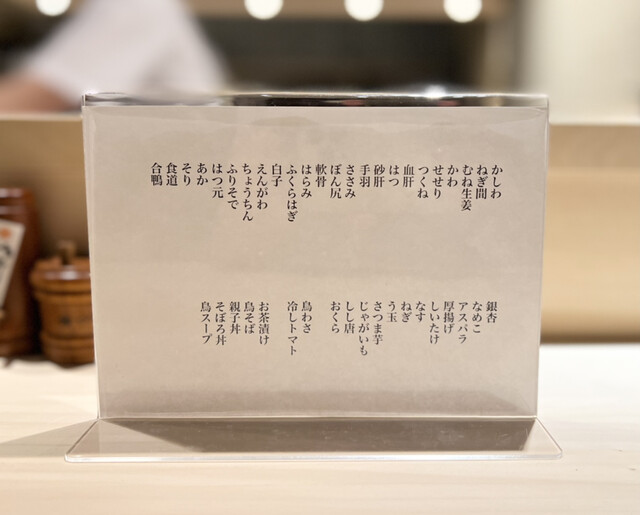 かしわ
ねぎ間
むね生姜
かわ
せせり
つくね
血肝
はつ
砂肝
手羽
ささみ
ぼん尻
軟骨
はらみ
ふくらはぎ
白子
えんがわ
ちょうちん
ふりそで
はつ元
あか
そり
食道
合鴨
銀杏
なめこ
アスパラ
厚揚げ
しいたけ
なす
ねぎ
う玉
さつま芋
じゃがいも
しし唐
おくら
鳥わさ
冷しトマト
お茶漬け
鳥そば
親子丼
そぼろ丼
鳥スープ